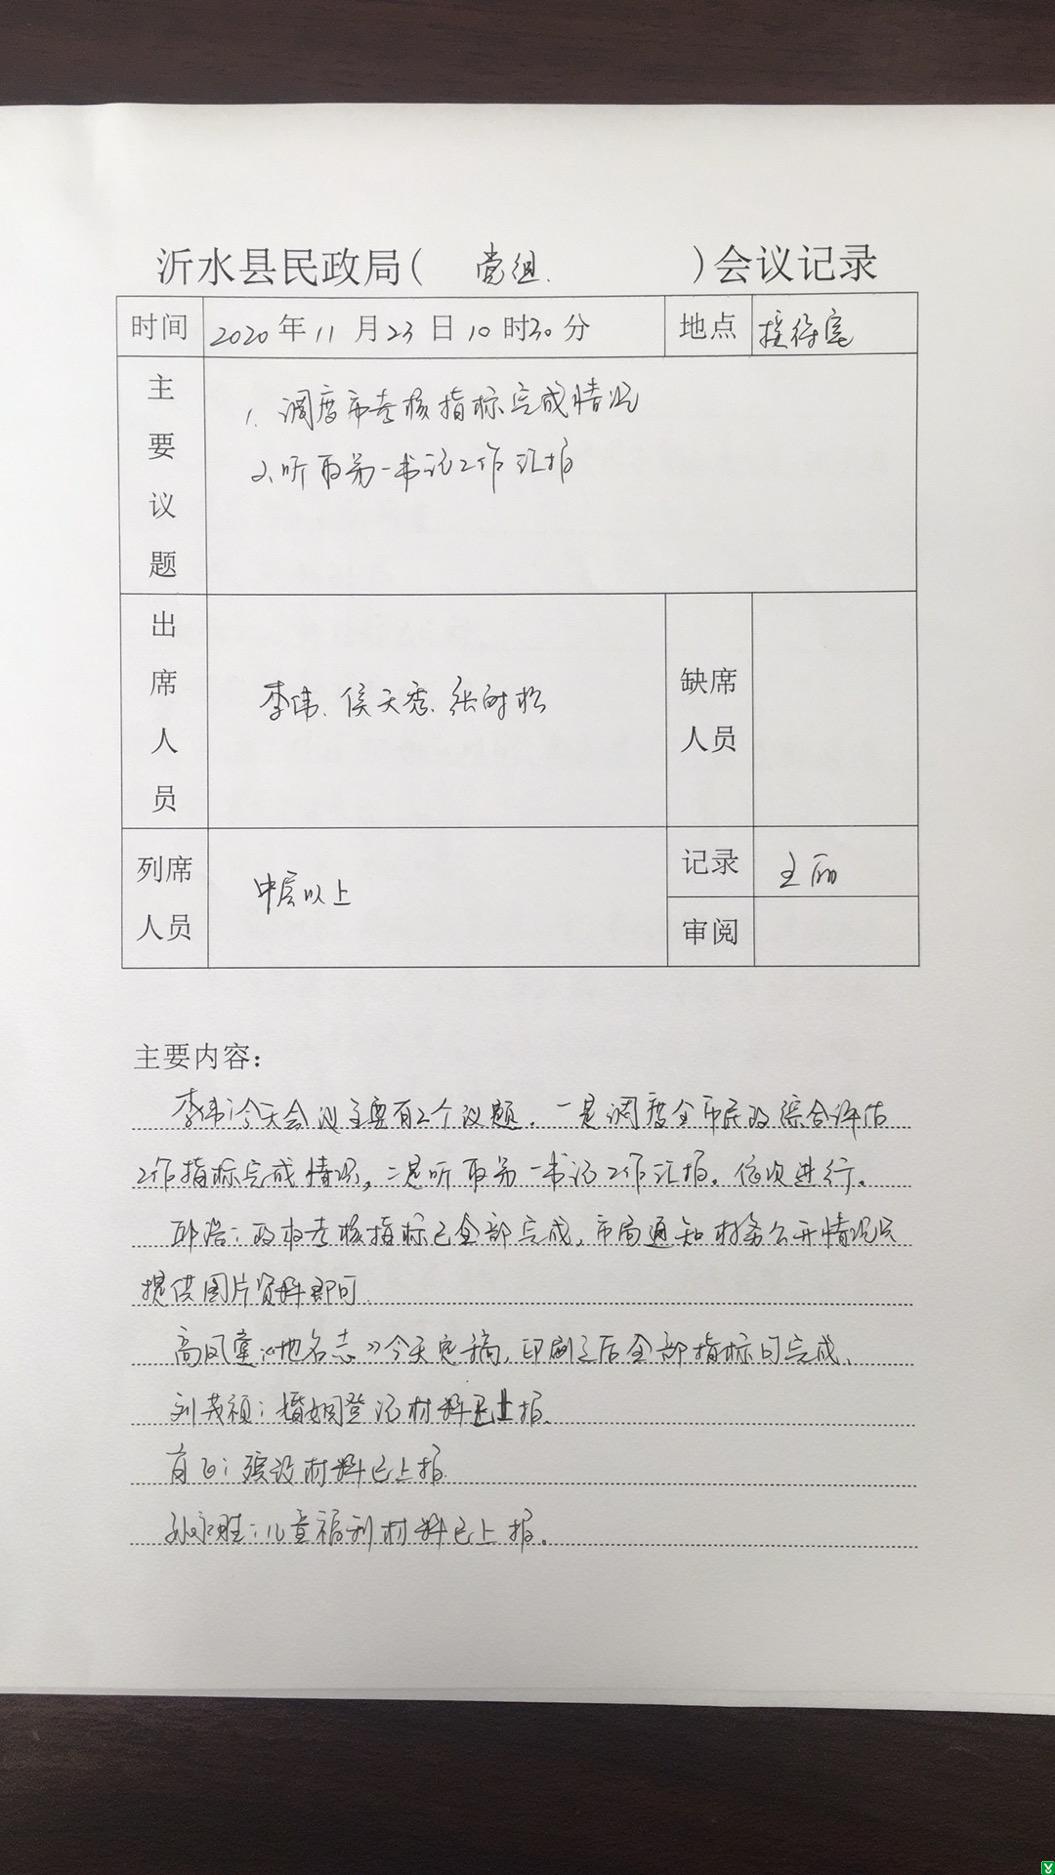 沂水县民政局( 党组 )会议记录
时间 2020年11月23日10时30分 地点 接待室
主要议题
1. 调度市考核指标完成情况
2、听取第一书记工作汇报
出席人员 李伟、侯天秀、张时松 缺席人员
列席人员 中层以上 记录 王丽
审阅
主要内容:
李伟:今天会议主要有2个议题,一是调度全市民政综合评估
工作指标完成情况,二是听取第一书记工作汇报。依次进行。
耿浩:政权考核指标已全部完成,市局通知村务公开情况只
提供图片资料即可
高凤堂:《地名志》今天定稿,印刷之后全部指标可完成、
刘茂祯:婚姻登记材料已上报、
肖飞:殡改材料已上报
孙永胜:儿童福利材料已上报。